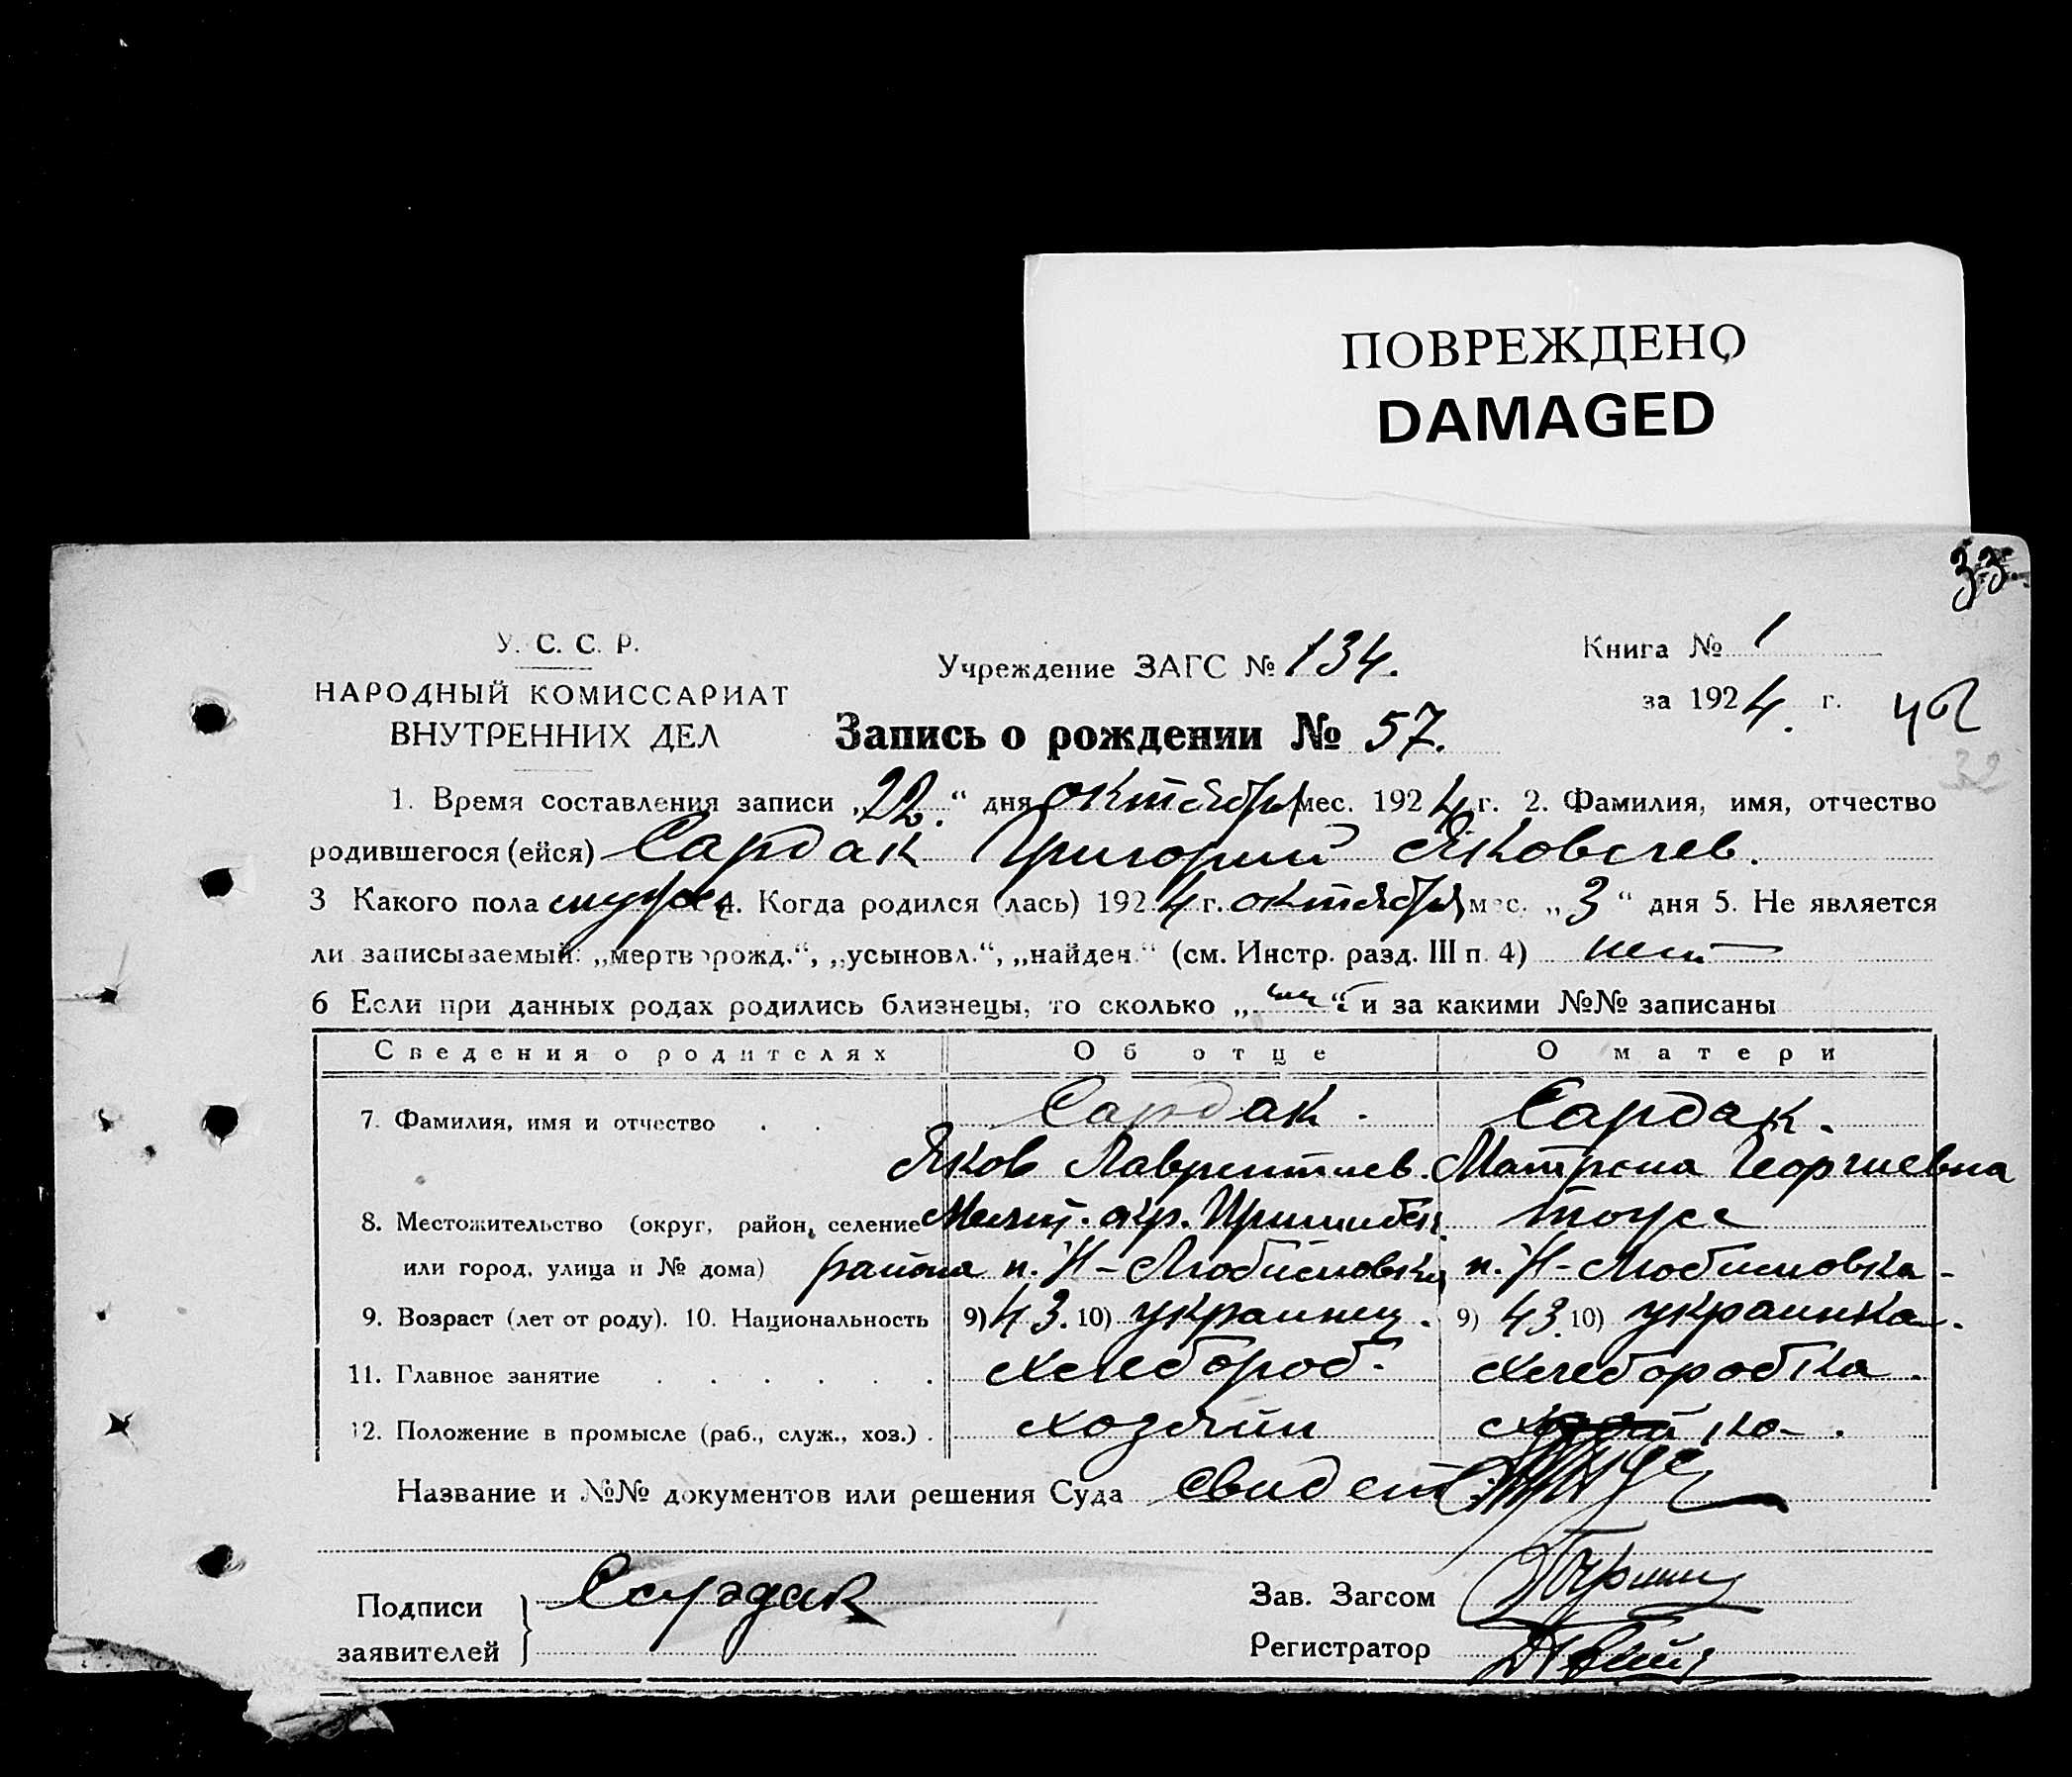 ПОВРЕЖДЕНО
DAMAGED
33
У. С. С. Р.
НАРОДНЫЙ КОМИССАРИАТ
ВНУТРЕННИХ ДЕЛ
Учреждение ЗАГС № 134.
Книга № 1
за 1924. г.
Запись о рождении № 57.
32
1. Время составления записи „22.“ дня октября мес. 1924 г. 2. Фамилия, имя, отчество
родившегося (ейся) Сардак Григорий Яковлев.
3 Какого пола мужск 4. Когда родился (лась) 1924 г. октября мес. „3“ дня 5. Не является
ли записываемый: „мертворожд.“, „усыновл.“, „найден.“ (см. Инстр. разд. III п. 4) нет
6 Если при данных родах родились близнецы, то сколько „ “ и за какими №№ записаны
Сведения о родителях Об отце О матери
7. Фамилия, имя и отчество . . Сардак. Сардак.
Яков Лаврентиев. Матрена Георгиевна
8. Местожительство (округ, район, селение Мелит. окр. Пришибск. тоже
или город, улица и № дома) района п. Н-Любимовка п. Н-Любимовка
9. Возраст (лет от роду). 10. Национальность 9) 43. 10) украинец. 9) 43. 10) украинка.
11. Главное занятие . . . . . . хлебороб. хлеборобка.
12. Положение в промысле (раб., служ., хоз.) . хозяин
Название и №№ документов или решения Суда свидет.
Подписи заявителей } Сардак
Зав. Загсом
Регистратор